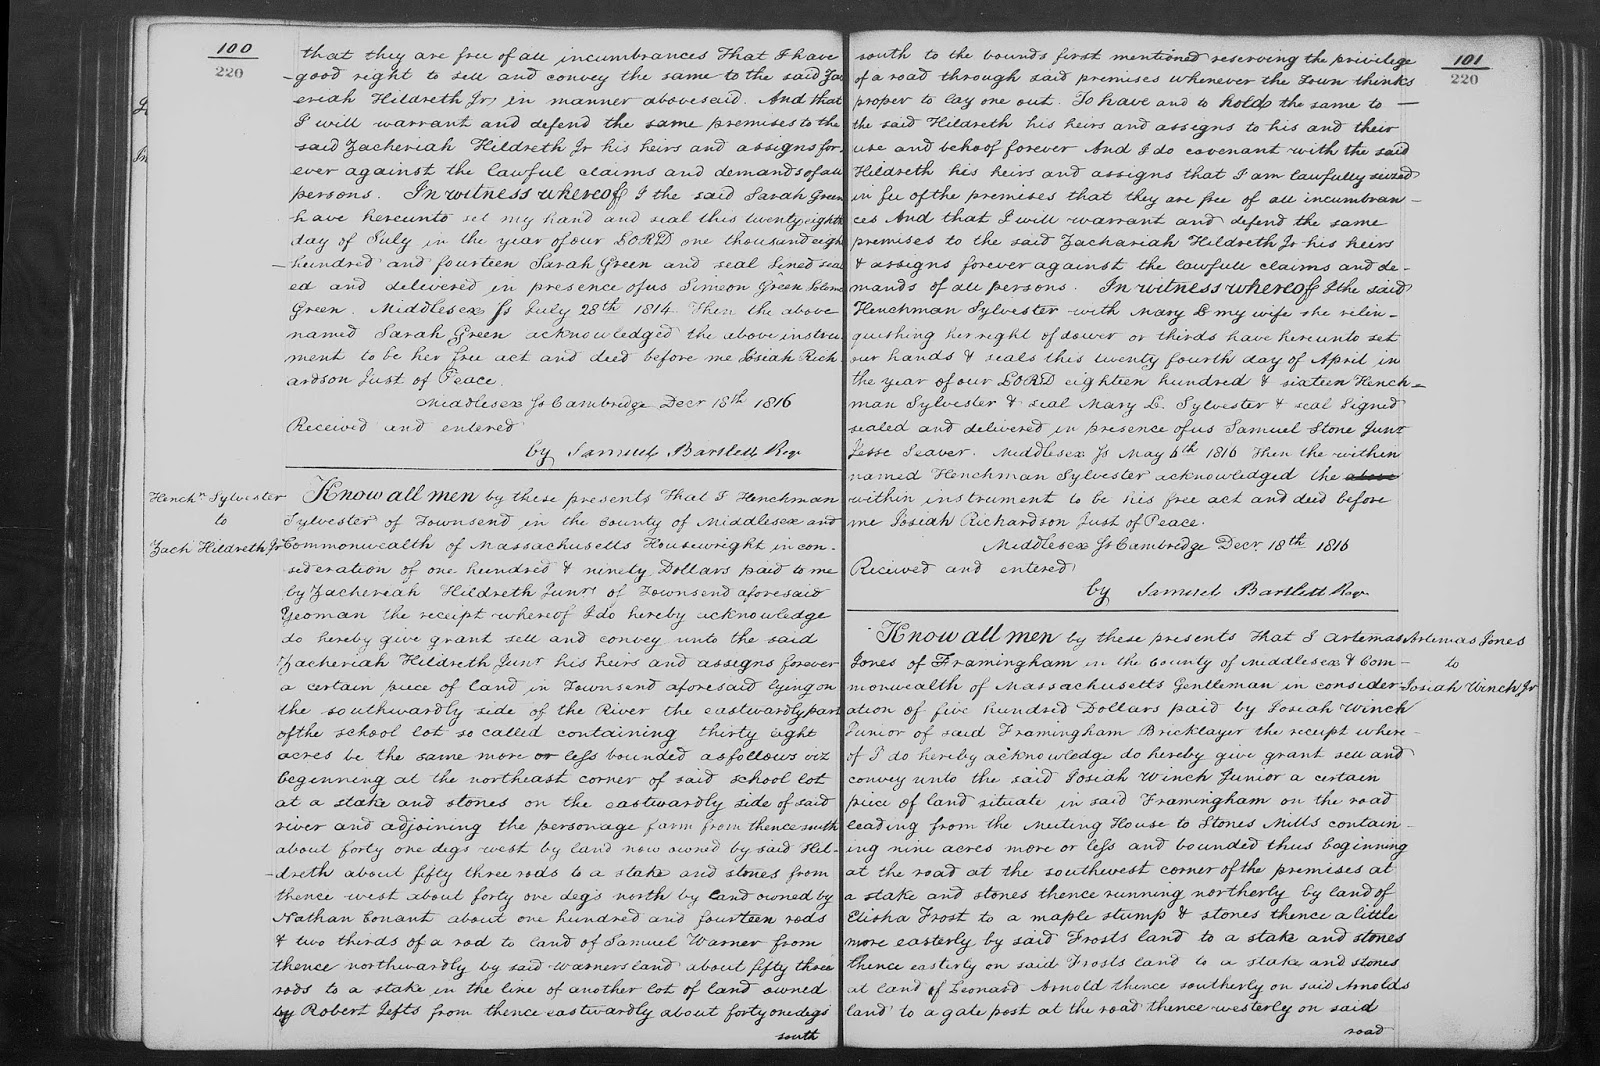 100
220
that they are free of all incumbrances That I have
good right to sell and convey the same to the said Za
eriah Hildreth Jr, in manner abovesaid. And that
I will warrant and defend the same premises to the
said Zacheriah Hildreth Jr his heirs and assigns for-
ever against the lawful claims and demands of all
persons. In witness whereof I the said Sarah Green
have hereunto set my hand and seal this twenty eighth
day of July in the year of our LORD one thousand eigh
hundred and fourteen Sarah Green and seal Sined seal
ed and delivered in presence of us Simeon Green
Green. Middlesex Ss July 28th 1814. Then the above
named Sarah Green acknowledged the above instru
ment to be her free act and deed before me Josiah Rich
ardson Just of Peace.
Middlesex Ss Cambridge Decr 18th 1816
Received and entered
by Samuel Bartlett Reg
Hench.n Sylvester
to
Zach Hildreth Jr
Know all men by these presents That I Henchman
Sylvester of Townsend in the County of Middlesex and
Commonwealth of Massachusetts Housewright in con-
sideration of one hundred & ninety Dollars paid to me
by Zacheriah Hildreth Junr of Townsend aforesaid
Yeoman the receipt whereof I do hereby acknowledge
do hereby give grant sell and convey unto the said
Zacheriah Hildreth Junr his heirs and assigns forever
a certain piece of land in Townsend aforesaid lying on
the southwardly side of the River the eastwardly part
of the school lot so called containing thirty eight
acres be the same more or less bounded as follows viz
beginning at the northeast corner of said school lot
at a stake and stones on the eastwardly side of said
river and adjoining the personage farm from thence south
about forty one degs west by land now owned by said Hil-
dreth about fifty three rods to a stake and stones from
thence west about forty one degs north by land owned by
Nathan Conant about one hundred and fourteen rods
& two thirds of a rod to land of Samuel Warner from
thence northwardly by said Warners land about fifty three
rods to a stake in the line of another lot of land owned
by Robert Jefts from thence eastwardly about forty one degs
south
101
220
south to the bounds first mentioned reserving the privilege
of a road through said premises whenever the Town thinks
proper to lay one out. To have and to hold the same to
the said Hildreth his heirs and assigns to his and their
use and behoof forever And I do covenant with the said
Hildreth his heirs and assigns that I am lawfully seized
in fee of the premises that they are free of all incumbran-
ces And that I will warrant and defend the same
premises to the said Zachariah Hildreth Jr his heirs
& assigns forever against the lawfull claims and de-
mands of all persons. In witness whereof I the said
Henchman Sylvester with Mary L my wife she relin-
quishing her right of dower or thirds have hereunto set
our hands & seals this twenty fourth day of April in
the year of our LORD eighteen hundred & sixteen Hench-
man Sylvester & seal Mary L. Sylvester & seal Signed
sealed and delivered in presence of us Samuel Stone Junr
Jesse Seaver. Middlesex Ss May 6th 1816 Then the within
named Henchman Sylvester acknowledged the above
within instrument to be his free act and deed before
me Josiah Richardson Just of Peace.
Middlesex Ss Cambridge Decr. 18th 1816
Received and entered
by Samuel Bartlett Reg
Artemas Jones
to
Josiah Winch Jr
Know all men by these presents That I Artemas
Jones of Framingham in the County of Middlesex & Com-
monwealth of Massachusetts Gentleman in consider-
ation of five hundred Dollars paid by Josiah Winch
Junior of said Framingham Bricklayer the receipt where-
of I do hereby acknowledge do hereby give grant sell and
convey unto the said Josiah Winch Junior a certain
piece of land situate in said Framingham on the road
leading from the Meeting House to Stones Mills contain-
ing nine acres more or less and bounded thus beginning
at the road at the southwest corner of the premises at
a stake and stones thence running northerly by land of
Elisha Frost to a maple stump & stones thence a little
more easterly by said Frosts land to a stake and stones
thence easterly on said Frosts land to a stake and stones
at land of Leonard Arnold thence southerly on said Arnolds
land to a gate post at the road thence westerly on said
road